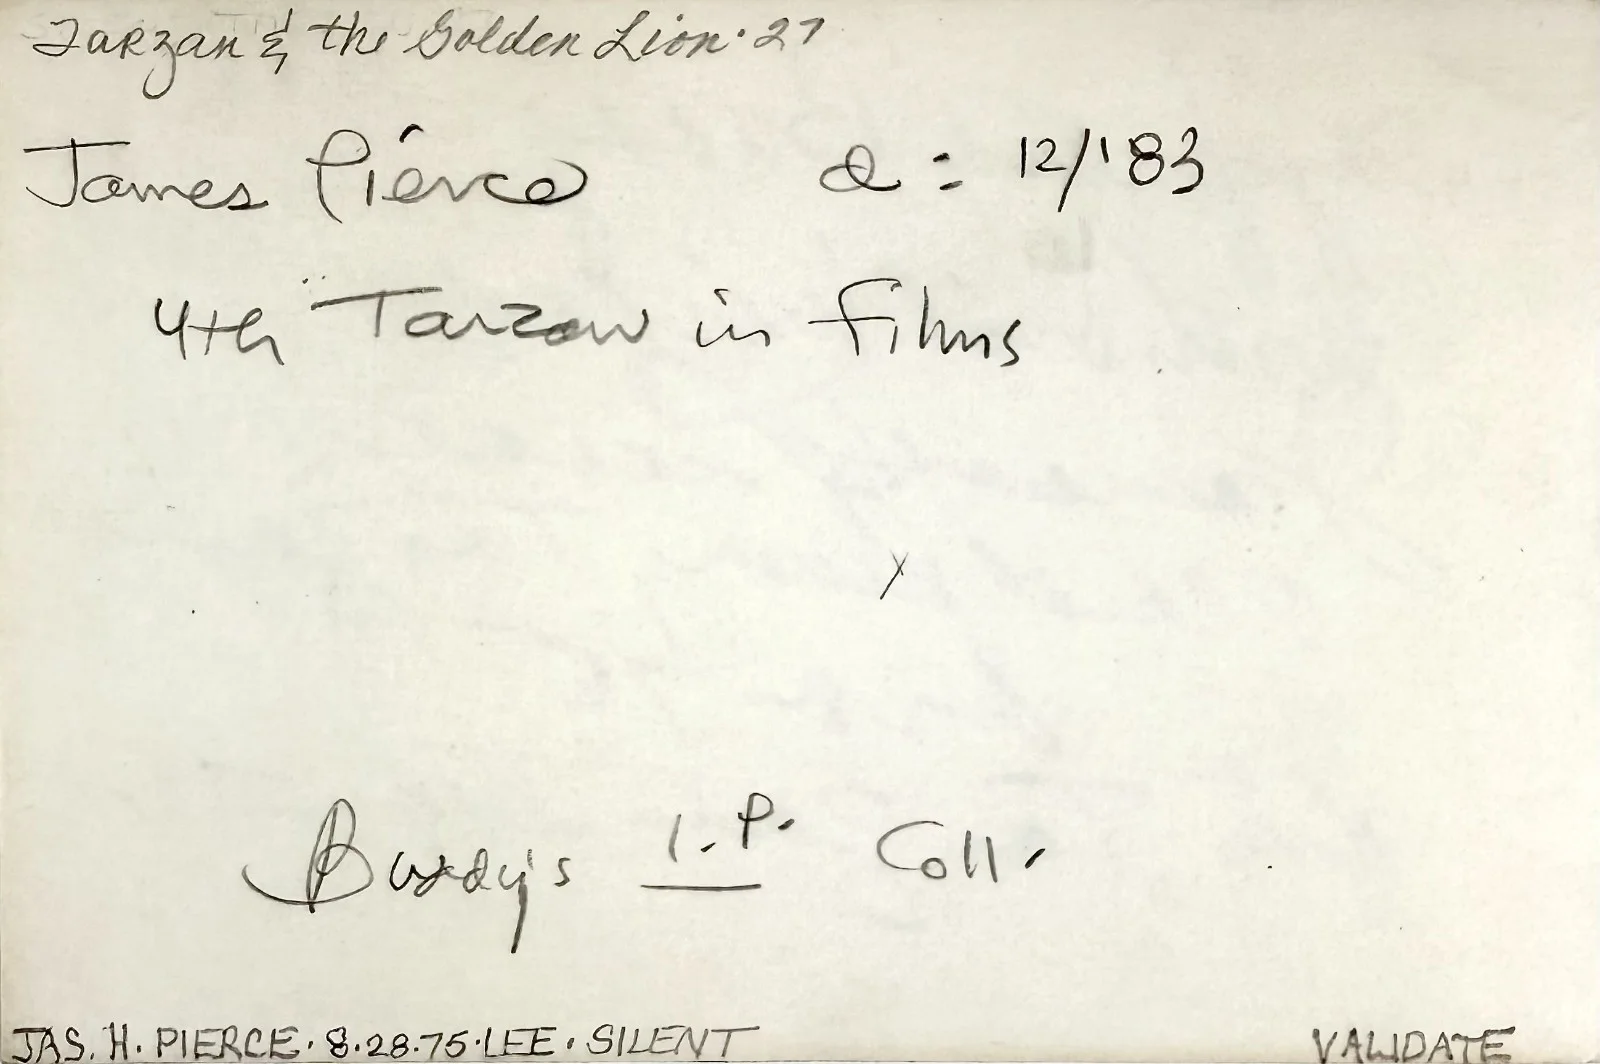 Tarzan & the Golden Lion · 27
James Pierce d = 12/'83
4th Tarzan in films
x
I.P. Coll.
JAS. H. PIERCE · 8·28·75·LEE · SILENT VALIDATE